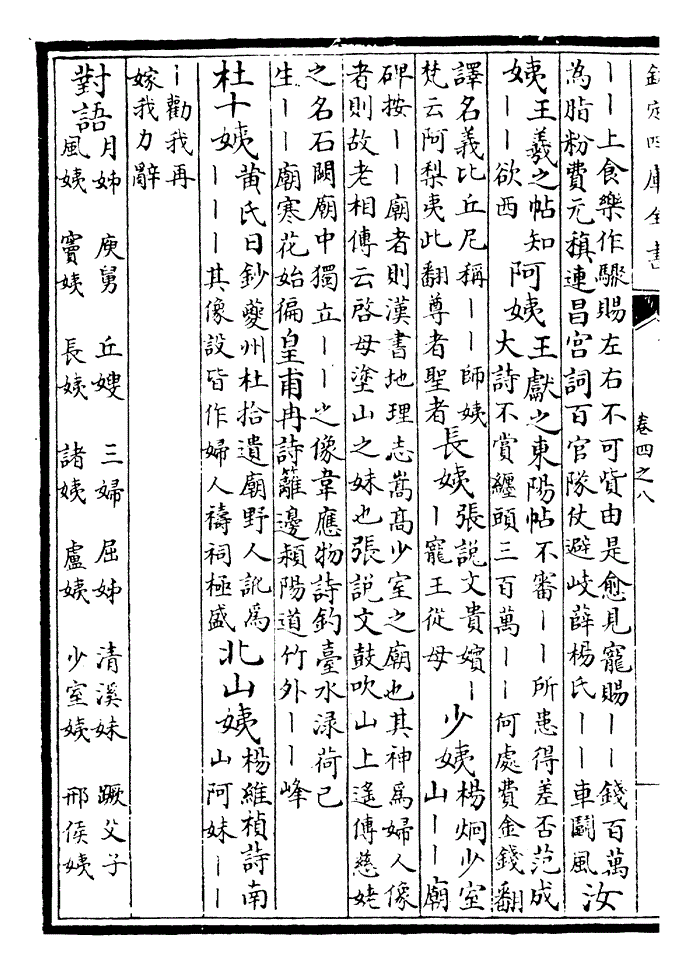 欽定四庫全書
卷四之八
丨丨上食樂作驟賜左右不可貲由是愈見寵賜丨丨錢百萬
為脂粉費元稹連昌宮詞百官隊仗避岐薛楊氏丨丨車鬭風
汝
姨
王羲之帖知
丨丨欲西
阿姨
王獻之東陽帖不審丨丨所患得差否范成
大詩不賞纏頭三百萬丨丨何處費金錢翻
譯名義比丘尼稱丨丨師姨
梵云阿梨夷此翻尊者聖者
長姨
張説文貴嬪丨
丨寵王從母
少姨
楊炯少室
山丨丨廟
碑按丨丨廟者則漢書地理志嵩高少室之廟也其神為婦人像
者則故老相傳云啓母塗山之妹也張説文鼓吹山上遙傳慈姥
之名石闕廟中獨立丨丨之像韋應物詩釣臺水渌荷已
生丨丨廟寒花始徧皇甫冉詩籬邊潁陽道竹外丨丨峰
杜十姨
黄氏日鈔夔州杜拾遺廟野人訛為
丨丨丨其像設皆作婦人禱祠極盛
北山姨
楊維楨詩南
山阿妹丨丨
丨勸我再
嫁我力辭
對語
月姊 庚舅 丘嫂 三婦 屈姊 清溪妹 蹶父子
風姨 竇姨 長姨 諸姨 盧姨 少室姨 邢侯姨